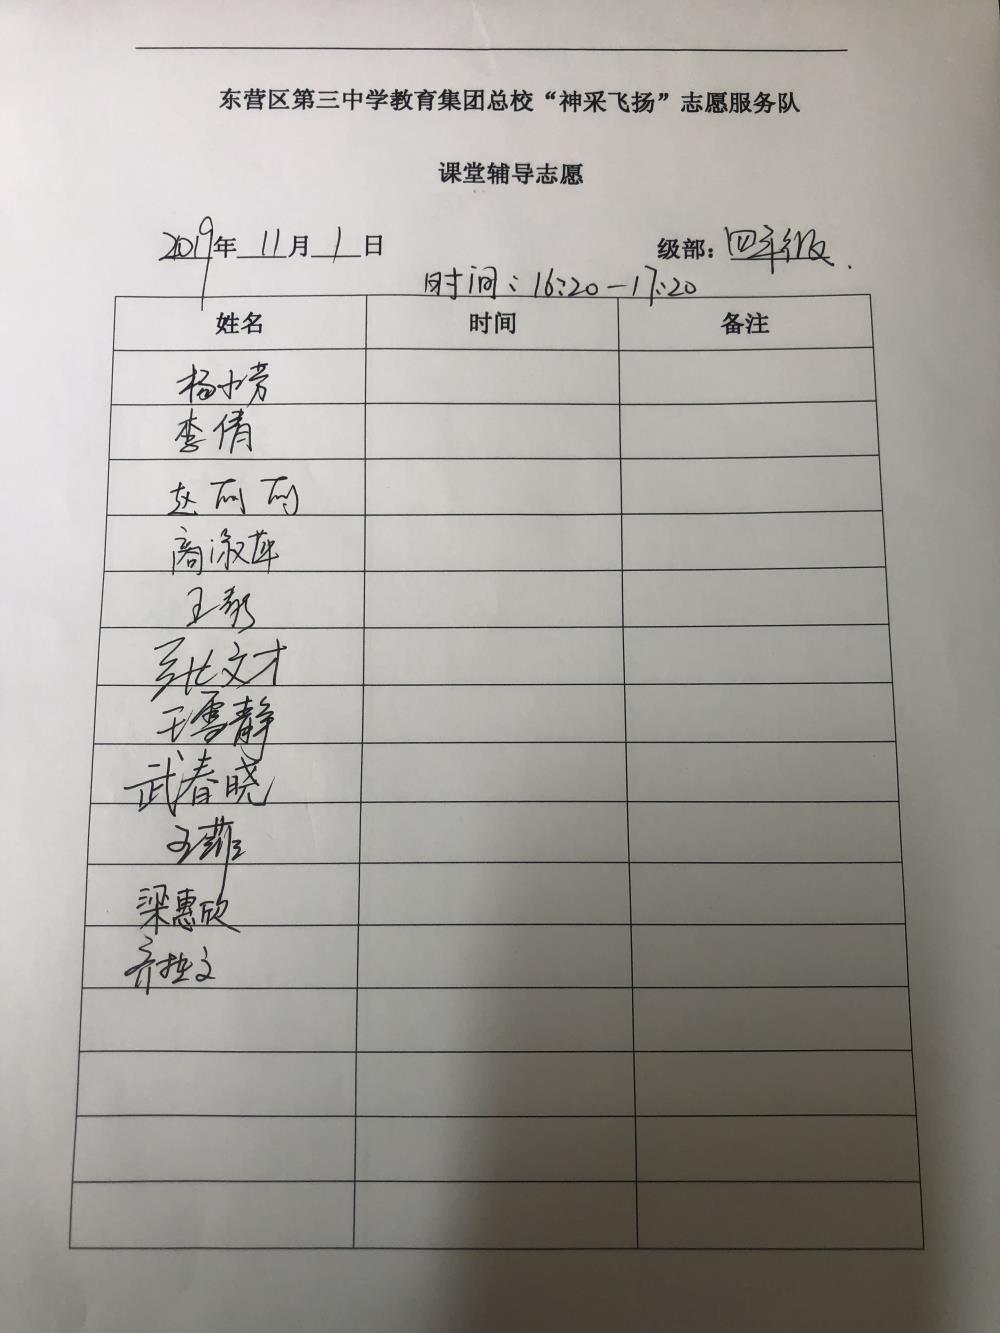 东营区第三中学教育集团总校“神采飞扬”志愿服务队
课堂辅导志愿
2019年 11月 1日 级部：四年级.
时间：16:20-17:20
姓名 时间 备注
杨小芳
李倩
赵丽丽
商淑萍
王彩
张文才
王雪静
武春晓
王菲
梁惠欣
齐